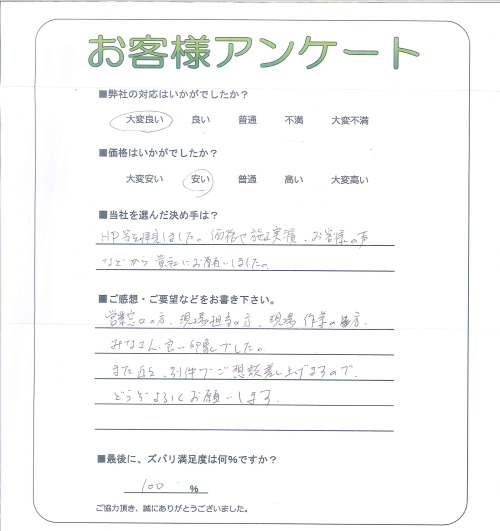 お客様アンケート
■弊社の対応はいかがでしたか？
大変良い 良い 普通 不満 大変不満
■価格はいかがでしたか？
大変安い 安い 普通 高い 大変高い
■当社を選んだ決め手は？
HP等を拝見しました。価格や施工実績、お客様の声
などから貴社にお願いしました。
■ご感想・ご要望などをお書き下さい。
営業窓口の方、現場担当の方、現場作業の方、
みなさん良い印象でした。
また 、別件でご相談差し上げますので、
どうぞよろしくお願いします。
■最後に、ズバリ満足度は何％ですか？
100 ％
ご協力頂き、誠にありがとうございました。